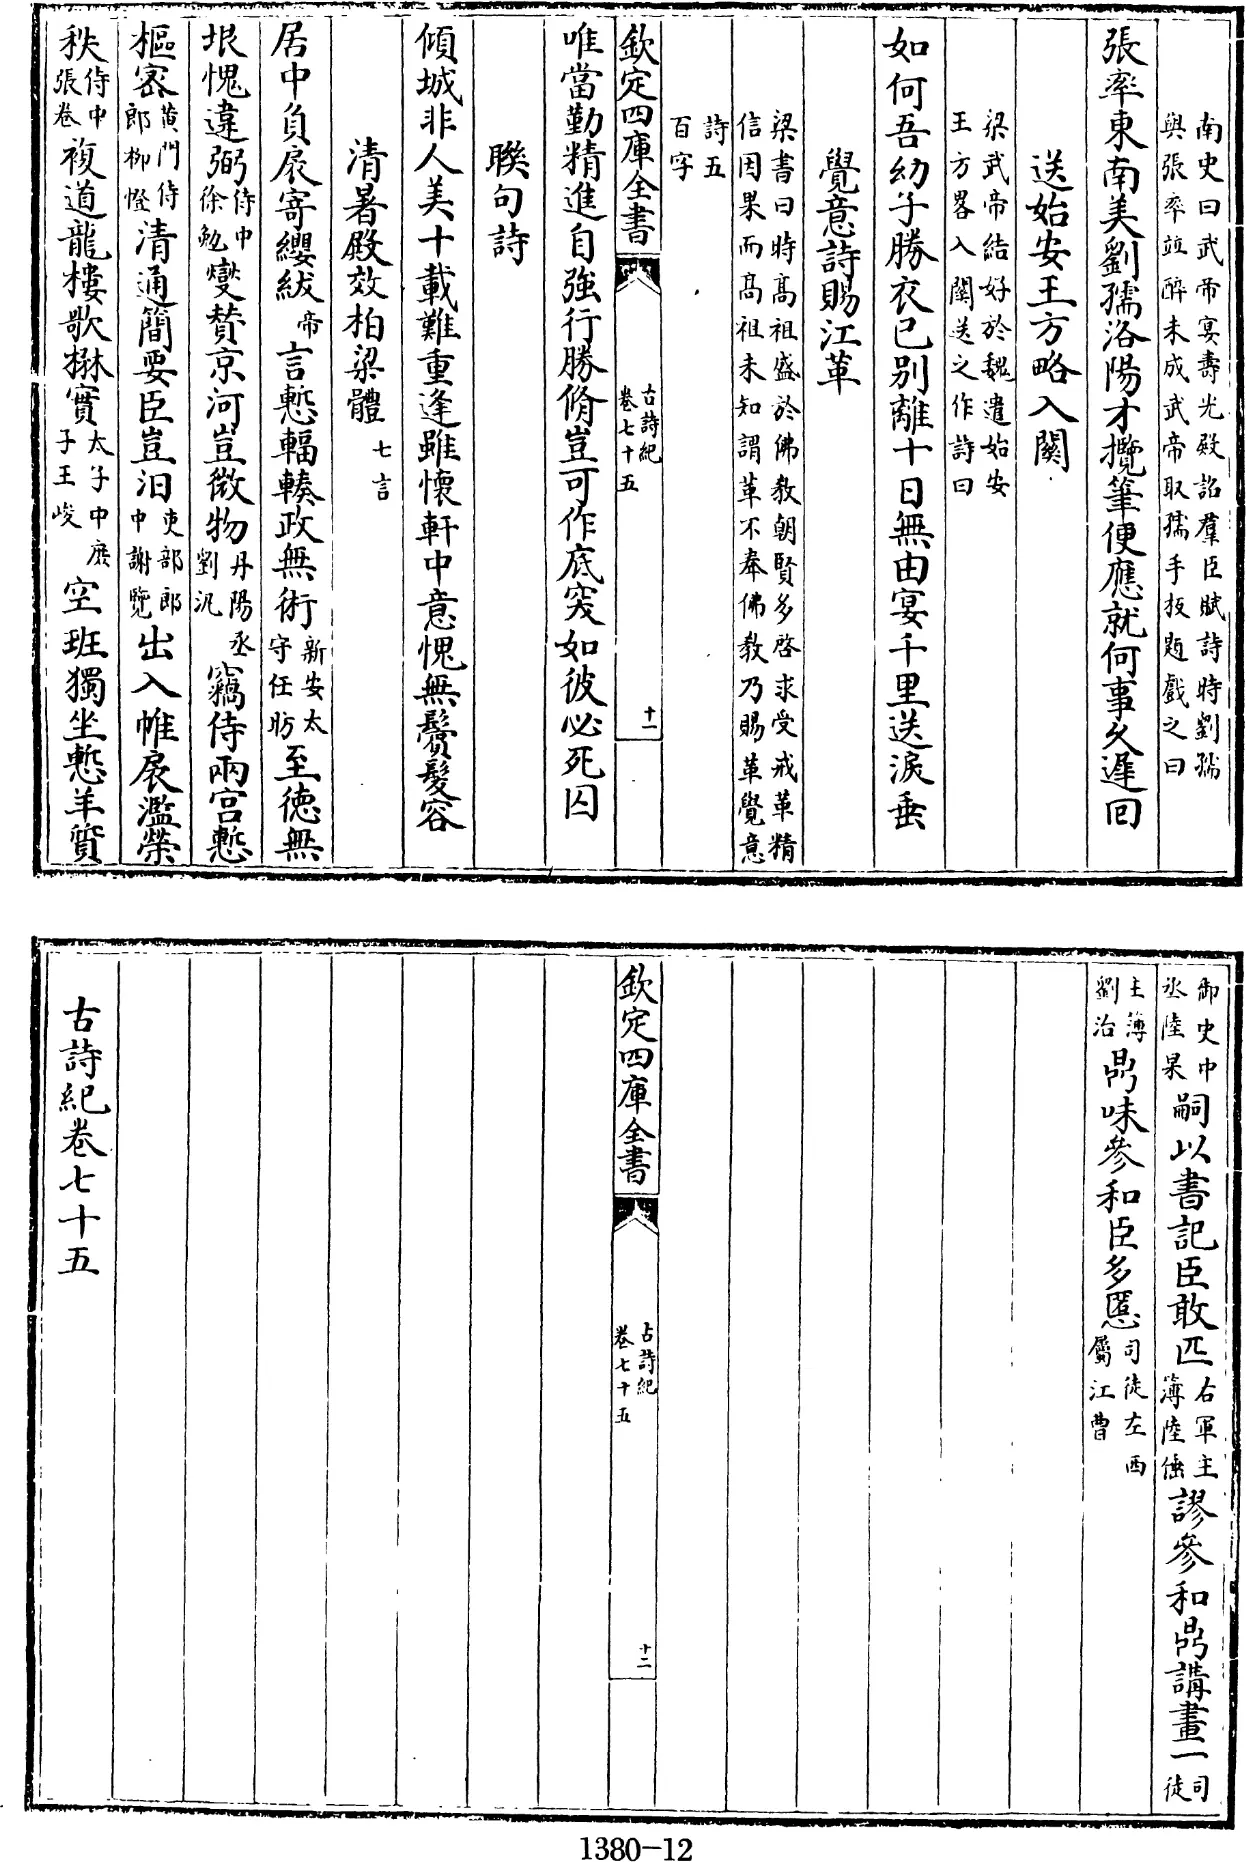 南史曰武帝宴壽光殿詔羣臣賦詩時劉孺
與張率並醉未成武帝取孺手板題戲之曰
張率東南美劉孺洛陽才攬筆便應就何事久遲回
送始安王方略入關
梁武帝結好於魏遣始安
王方畧入關送之作詩曰
如何吾幼子勝衣已別離十日無由宴千里送淚垂
覺意詩賜江革
梁書曰時髙祖盛於佛教朝賢多啓求受戒革精
信因果而髙祖未知謂革不奉佛教乃賜革覺意
詩五
百字
欽定四庫全書
古詩紀
卷七十五
十一
唯當勤精進自強行勝脩豈可作底突如彼必死囚
聯句詩
傾城非人美十載難重逢雖懷軒中意愧無鬢髮容
清暑殿效柏梁體七言
居中負扆寄纓紱帝言慙輻輳政無術新安太守任昉至徳無
垠愧違弼侍中徐勉燮贊京河豈微物丹陽丞劉汎竊侍兩宫慙
樞宻黄門侍郎柳憕清通簡要臣豈汨吏部郎中謝覽出入帷扆濫榮
秩侍中張卷複道龍樓歌楙實太子中庶子王峻空班獨坐慙羊質
御史中丞陸杲嗣以書記臣敢匹右軍主簿陸倕謬參和鼎講畫一司徒
主簿劉洽鼎味參和臣多匿司徒左西屬江曹
欽定四庫全書
古詩紀
卷七十五
十二
古詩紀卷七十五
1380-12